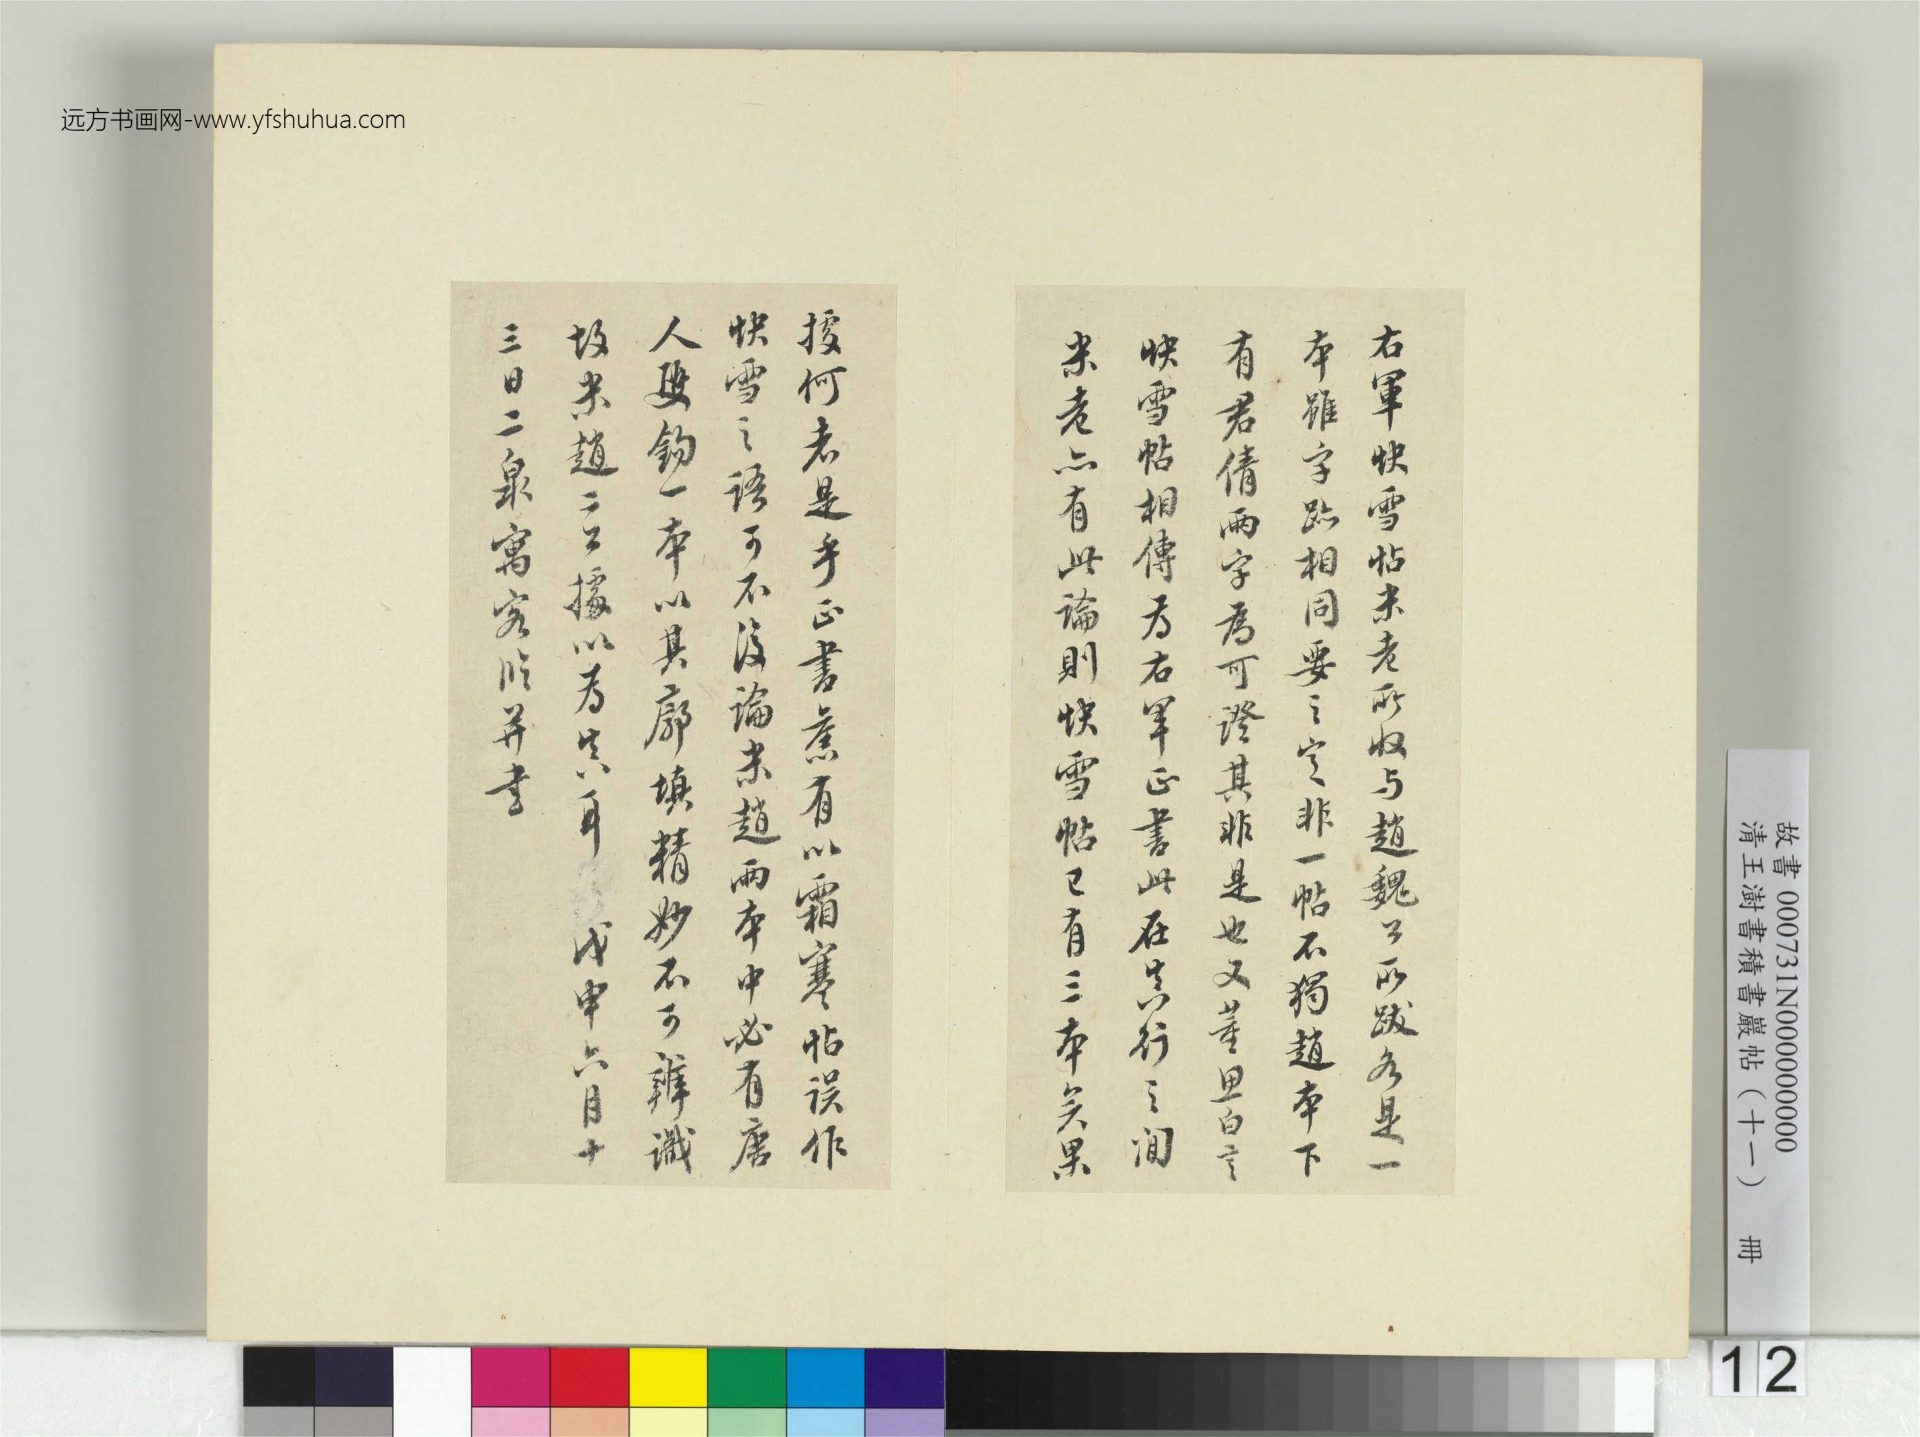 远方书画网-www.yfshuhua.com
右軍快雪帖米老所收与趙魏公所跋各是一
本雖字跡相同要之定非一帖不獨趙本下
有君倩兩字爲可證其非是也又董思白言
快雪帖相傳为右軍正書此在真行之間
米老亦有此論則快雪帖已有三本矣果
援何者是乎正書舊有以霜寒帖误作
快雪之語可不復論米趙兩本中必有唐
人雙鉤一本以其廓填精妙不可辨識
故米趙二公據以为真耳 戊申六月十
三日二泉寓客臨并書
故書 000731N000000000
清王澍書積書巖帖(十一) 冊
12